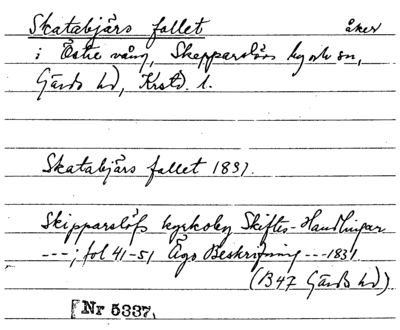 Skatabjärs fallet åker
i Östre vång, Skepparslövs by och sn,
Gärds hd, Krstd. l.
Skatabjärs fallet 1831.
Skipparslöfs kyrkoby Skiftes-Handlingar
---; fol 41-51 Ägo Beskrifning --- 1831
(B47 Gärds hd)
Nr 5337.